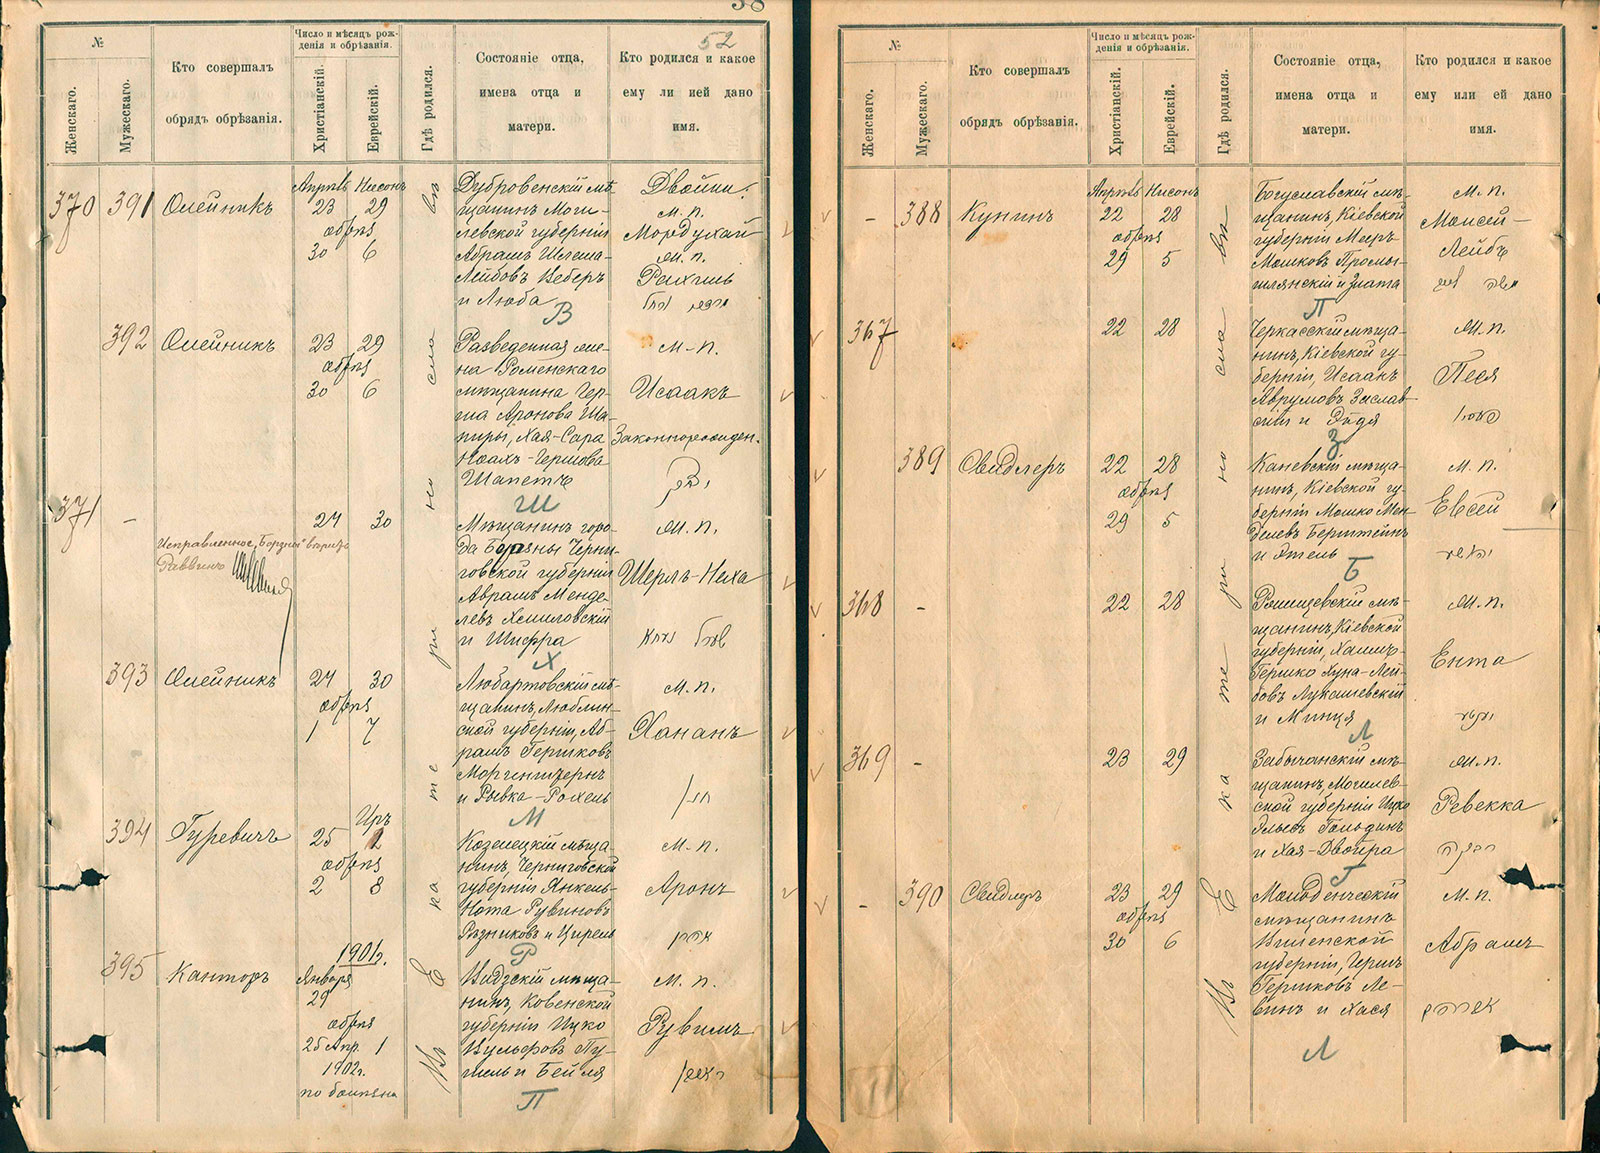 38
52
№
Женскаго.
Мужескаго.
Кто совершалъ
обрядъ обрѣзанія.
Число и мѣсяцъ рож-
денія и обрѣзанія.
Христіанскій.
Еврейскій.
Гдѣ родился.
Состояніе отца,
имена отца и
матери.
Кто родился и какое
ему ли ией дано
имя.
370 391 Олейникъ
Апрѣль Нисонъ
23 29
обрѣз
30 6
Дубровенскій мѣ-
щанинъ Моги-
левской губерніи
Абрамъ Шлема-
Лейбовъ Веберъ
и Люба
В
Двойни:
м. п.
Мордухай
м. п.
Рахиль
מרדכי רחל
392 Олейникъ
23 29
обрѣз
30 6
Разведенная же-
на Роменскаго
мѣщанина Гер-
ша Аронова Ша-
пиры, Хая-Сара
Ноахъ-Гершова
Шапетъ
Ш
м. п.
Исаакъ
Законнорожден.
יצחק
371 -
24 30
Исправленное „Борзны" вѣрно
Раввинъ
Мѣщанинъ горо-
да Борзны Черни-
говской губерніи
Абрамъ Менде-
левъ Хмиловскій
и Шифра
Х
м. п.
Шерлъ-Неха
שערל נעכא
393 Олейникъ
24 30
обрѣз
1 7
Любартовскій мѣ-
щанинъ, Люблин-
ской губерніи, Аб-
рамъ Гершковъ
Моргенштернъ
и Рывка-Рохель
М
м. п.
Хананъ
חנן
394 Гуревичъ
Иръ
25 1
обрѣз
2 8
Козелецкій мѣща-
нинъ, Черниговской
губерніи Янкель-
Нота Рувиновъ
Рѣзниковъ и Цирель
Р
м. п.
Аронъ
אהרן
395 Канторъ
1901г.
Января
29
обрѣз
25 Апр. 1
1902г.
по болѣзни
Видзскій мѣща-
нинъ, Ковенской
губерніи Ицко
Вульфовъ Пу-
и Бейля
П
м. п.
Рувимъ
ראובן
Въ Екатеринославѣ
№
Женскаго.
Мужескаго.
Кто совершалъ
обрядъ обрѣзанія.
Число и мѣсяцъ рож-
денія и обрѣзанія.
Христіанскій.
Еврейскій.
Гдѣ родился.
Состояніе отца,
имена отца и
матери.
Кто родился и какое
ему или ей дано
имя.
- 388 Кунинъ
Апрѣль Нисонъ
22 28
обрѣз
29 5
Богуславскій мѣ-
щанинъ, Кіевской
губерніи Меръ
Мошковъ Промы-
шлянскій и Злата
П
м. п.
Моисей-
Лейбъ
משה לייב
367
22 28
Черкасскій мѣща-
нинъ, Кіевской гу-
берніи, Исаакъ
Аврумовъ Заслав-
скій и Эйдя
З
м. п.
Песя
פעסיא
389 Свидлеръ
22 28
обрѣз
29 5
Каневскій мѣща-
нинъ, Кіевской гу-
берніи Мошко Мен-
делевъ Бернштейнъ
и Этель
Б
м. п.
Евсей
יהושע
368 -
22 28
мѣ-
щанинъ, Кіевской
губерніи, Хаимъ-
Гершко Хуна-Лей-
бовъ Лукашевскій
и Минця
Л
м. п.
Ента
יענטא
369 -
23 29
Забычанскій мѣ-
щанинъ, Могилев-
ской губерніи Ицко
Эльевъ Гольдинъ
и Хая-Двойра
Г
м. п.
Ревекка
רבקה
- 390 Свидлеръ
23 29
обрѣз
30 6
Молоденческій
мѣщанинъ
Виленской
губерніи, Герцъ
Гершковъ Ле-
винъ и Хася
Л
м. п.
Абрамъ
אברהם
Въ Екатеринославѣ